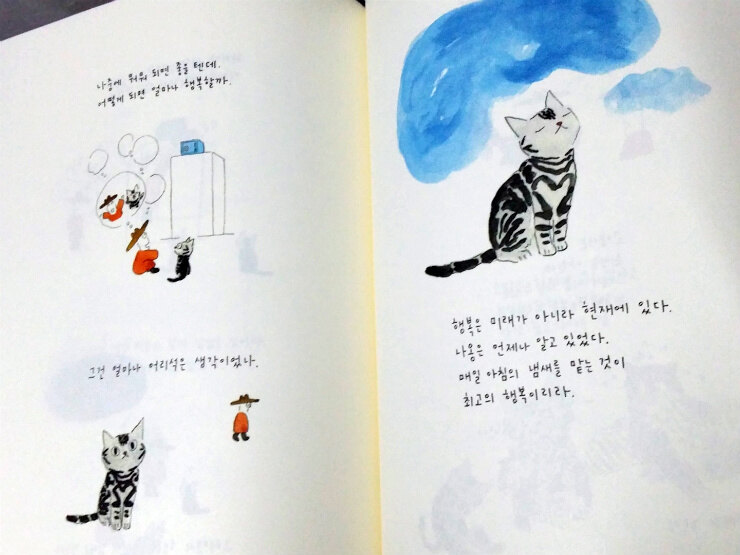 나중에 뭐뭐 되면 좋을 텐데.
어떻게 되면 얼마나 행복할까.
그건 얼마나 어리석은 생각이었나.
행복은 미래가 아니라 현재에 있다.
나옹은 언제나 알고 있었다.
매일 아침의 냄새를 맡는 것이
최고의 행복이리라.